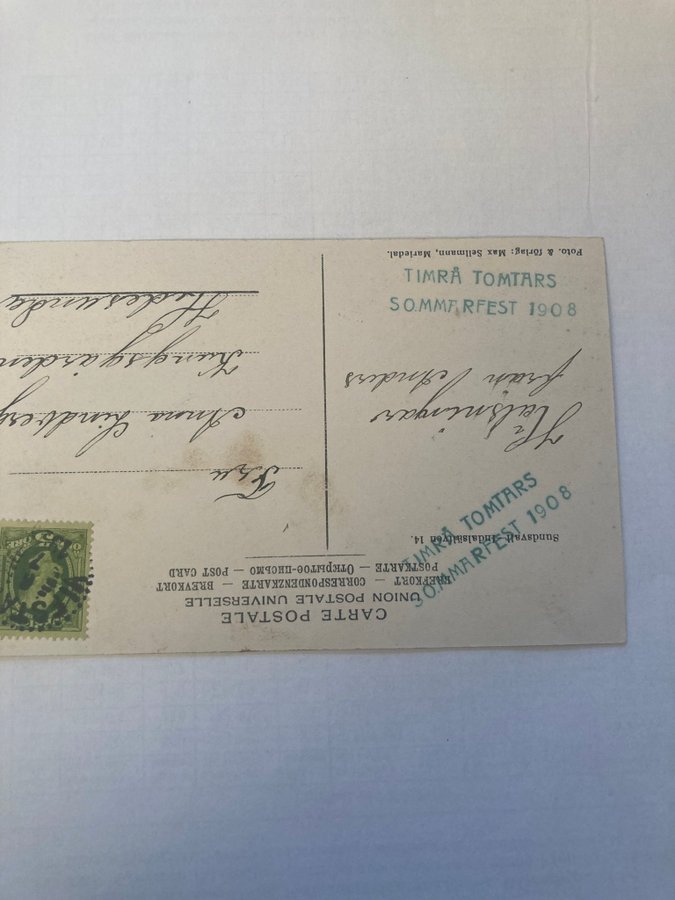 CARTE POSTALE
UNION POSTALE UNIVERSELLE
BREFKORT — CORRESPONDENZKARTE — BREVKORT
POSTKARTE — Открытое-письмо — POST CARD
Sundsvall–Indalsälfven 14.
Hälsningar
från Anders
Foto. & förlag: Max Sellmann, Mariedal.
Fru
Anna Lindberg
Kungsgården
Hedesunda
TIMRÅ TOMTARS
SOMMARFEST 1908
TIMRÅ TOMTARS
SOMMARFEST 1908